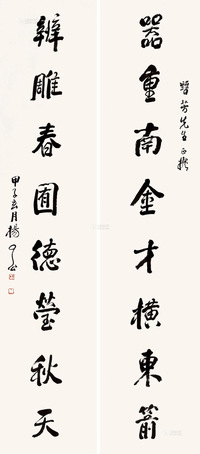 哲芳先生正撰
器重南金才横東箭
辭雕春圃德瑩秋天
甲子玄月楊